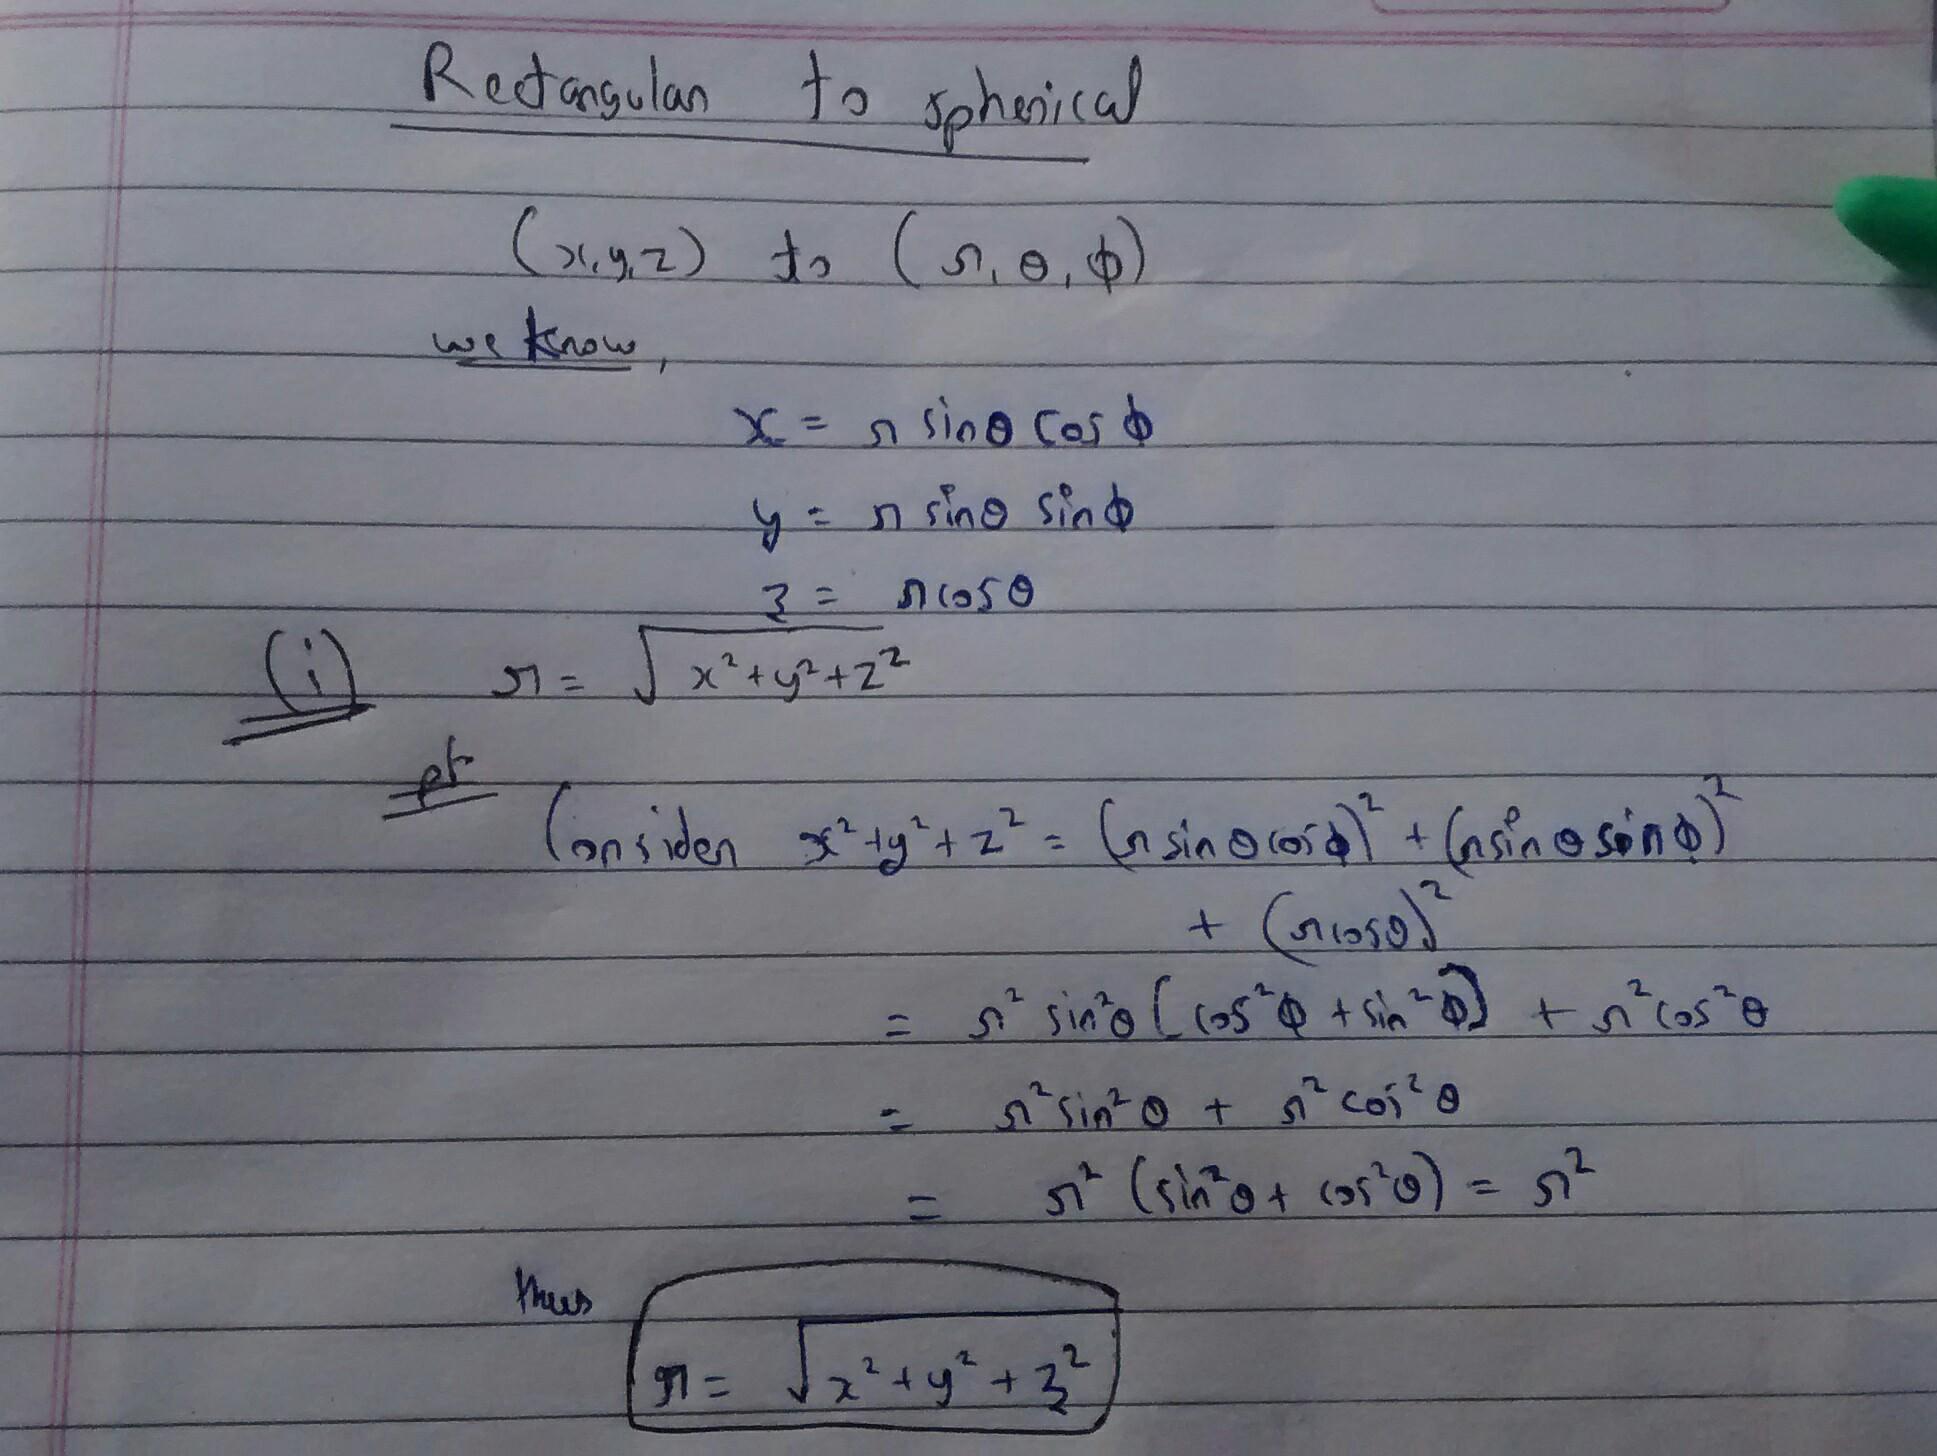 Rectangular to spherical
(x,y,z) to (r,θ,ϕ)
we know,
x = r sinθ cosϕ
y = r sinθ sinϕ
z = r cosθ
(i) r = √x²+y²+z²
pf
Consider x²+y²+z² = (r sinθ cosϕ)² + (r sinθ sinϕ)²
+ (r cosθ)²
= r² sin²θ [cos²ϕ + sin²ϕ] + r² cos²θ
= r² sin²θ + r² cos²θ
= r² (sin²θ + cos²θ) = r²
thus
r = √x²+y²+z²